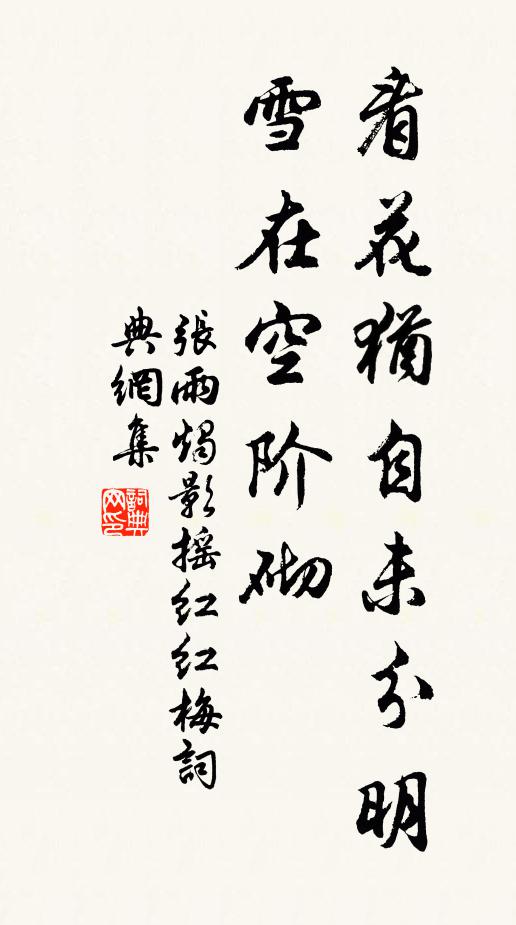 看花猶自未分明
雪在空阶砌
張雨燭影摇红红梅詞
典網集
詞典网印